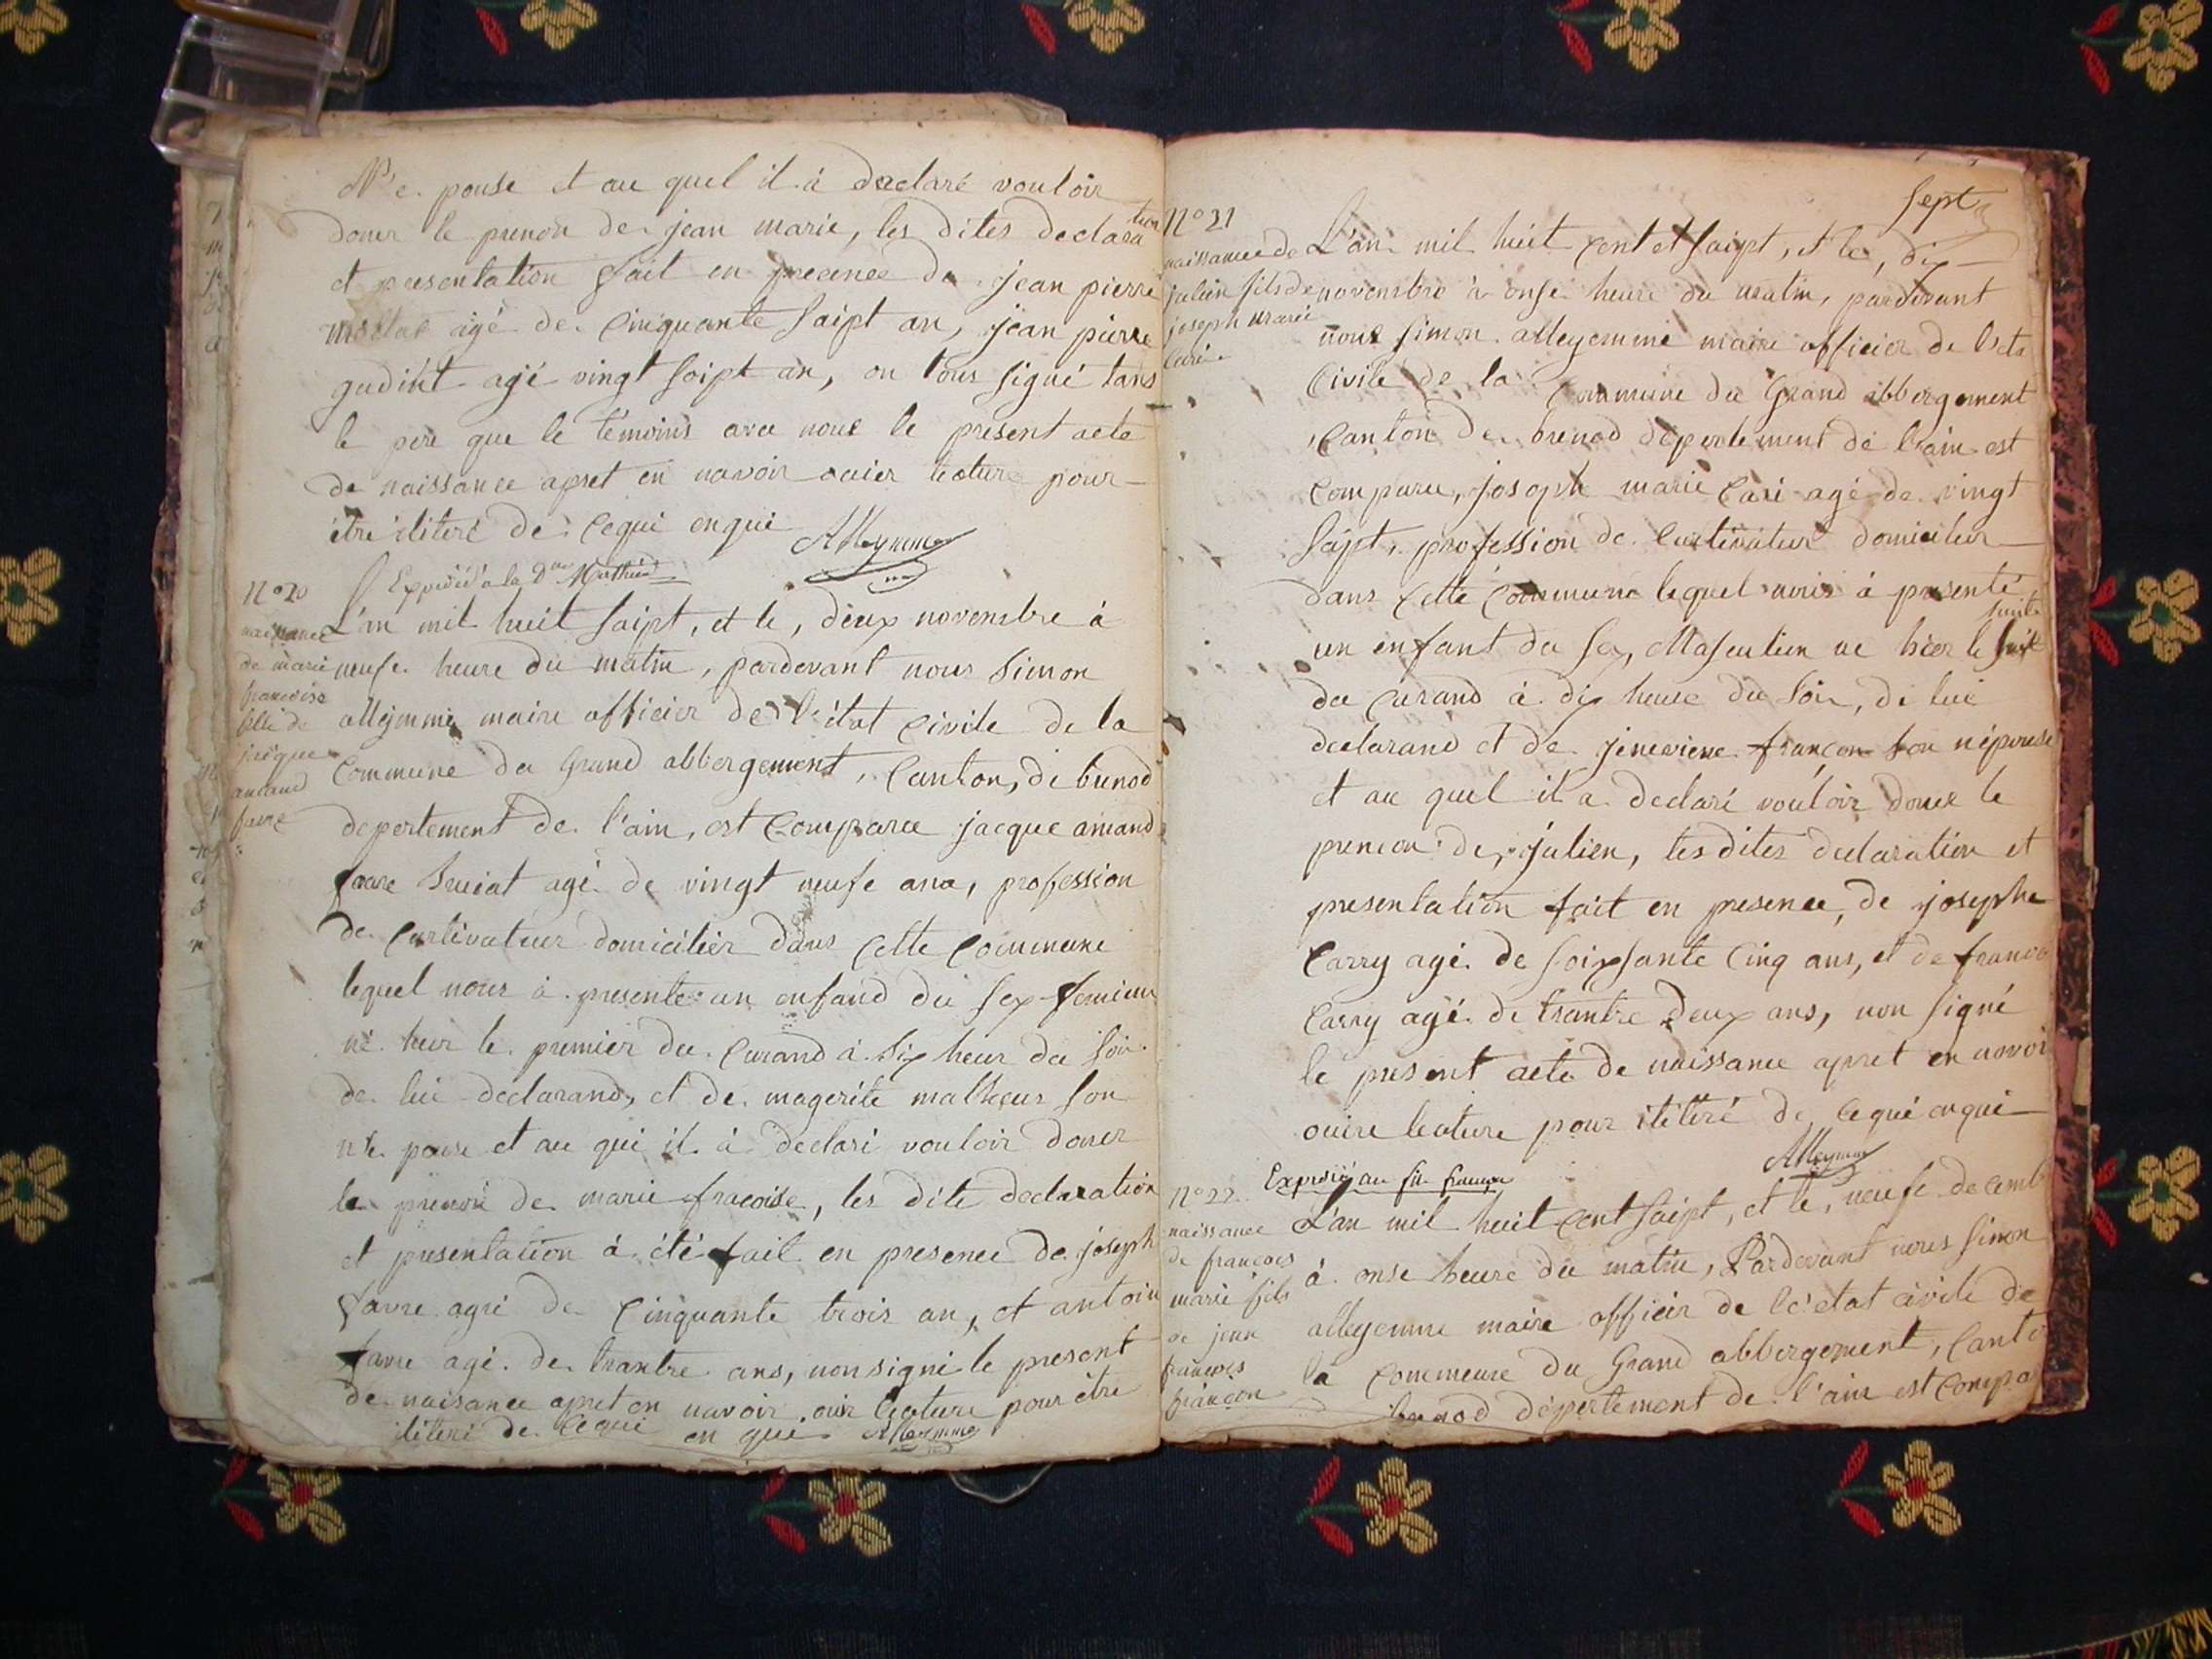 N'e pouse et au quel il à declaré vouloir
doner le prenon de jean marie, les dites declaration
et presentation fait en presence de jean pierre
agé de cinquante saipt an, jean pierre
gudint agé vingt soipt an, on tous signé tans
le pere que le temoins avec nous le present acte
de naissance apret en navoir ouier lecture pour
être iliteré de ce qui enqui
Alleymme
N° 20
naissance
de marie
francoise
fille de
jacque
amand
favre
Expédié à la
L'an mil huit saipt, et le, deux novembre à
neufe heure du matin, pardevant nous simon
alleyemme maire officier de l'état civile de la
Commune du Grand abbergement, Canton, de brenod
depertement de l'ain, est Comparu jacque amand
favre agé de vingt neufe ans, profession
de Cultivateur domicilier dans cette Commune
lequel nous à presente un enfand du sex feminin
né hier le premier du Curand à six heur du soir
de lui declarand, et de magerite matheus son
n'e pouse et au qui il à declaré vouloir doner
le prenon de marie fracoise, les dite declaration
et presentation à été fait en presence de joseph
favre agé de cinquante trois an, et antoin
favre agé de trantre ans, non signé le present
de naisance apret en navoir ouir lecture pour être
iliteré de ce qui en qui Alleymme
sept
N° 21
naissance de
julien fils de
joseph marie
Cari
L'an mil huit cent et saipt, et le, dix
novembre à onse heure du matin, pardevant
nous simon alleyemme maire officier de l'eta
Civile de la Commune du Grand abbergement
Canton de brenod depertement de l'ain est
comparu, joseph marie Cari agé de vingt
saipt, profession de Cultivateur domicilier
dans cette Commune lequel nous à presenté
un enfant du sex, Masculien ne hier le huit
du Curand à dix heure du soir, de lui
declarand et de jenevieve françon son népouse
et au quel il a declaré vouloir doner le
prenon de, julien, les dites declaration et
presentation fait en presence, de josephe
Carry agé de soixsante Cinq ans, et de franco
Carry agé de trantre deux ans, non signé
le present acte de naissance apret en navoi
ouire lecture pour iliteré de ce qui enqui
Alleymme
N° 22
naissance
de francois
marie fils
de jean
francois
françon
Expédié au
L'an mil huit cent saipt, et le, neufe decemb
à onse heure du matin, Pardevant nous simon
alleyemme maire officier de l'etat civile de
la Commeune du Grand abbergement, Canto
brenod dépertement de l'ain est compa